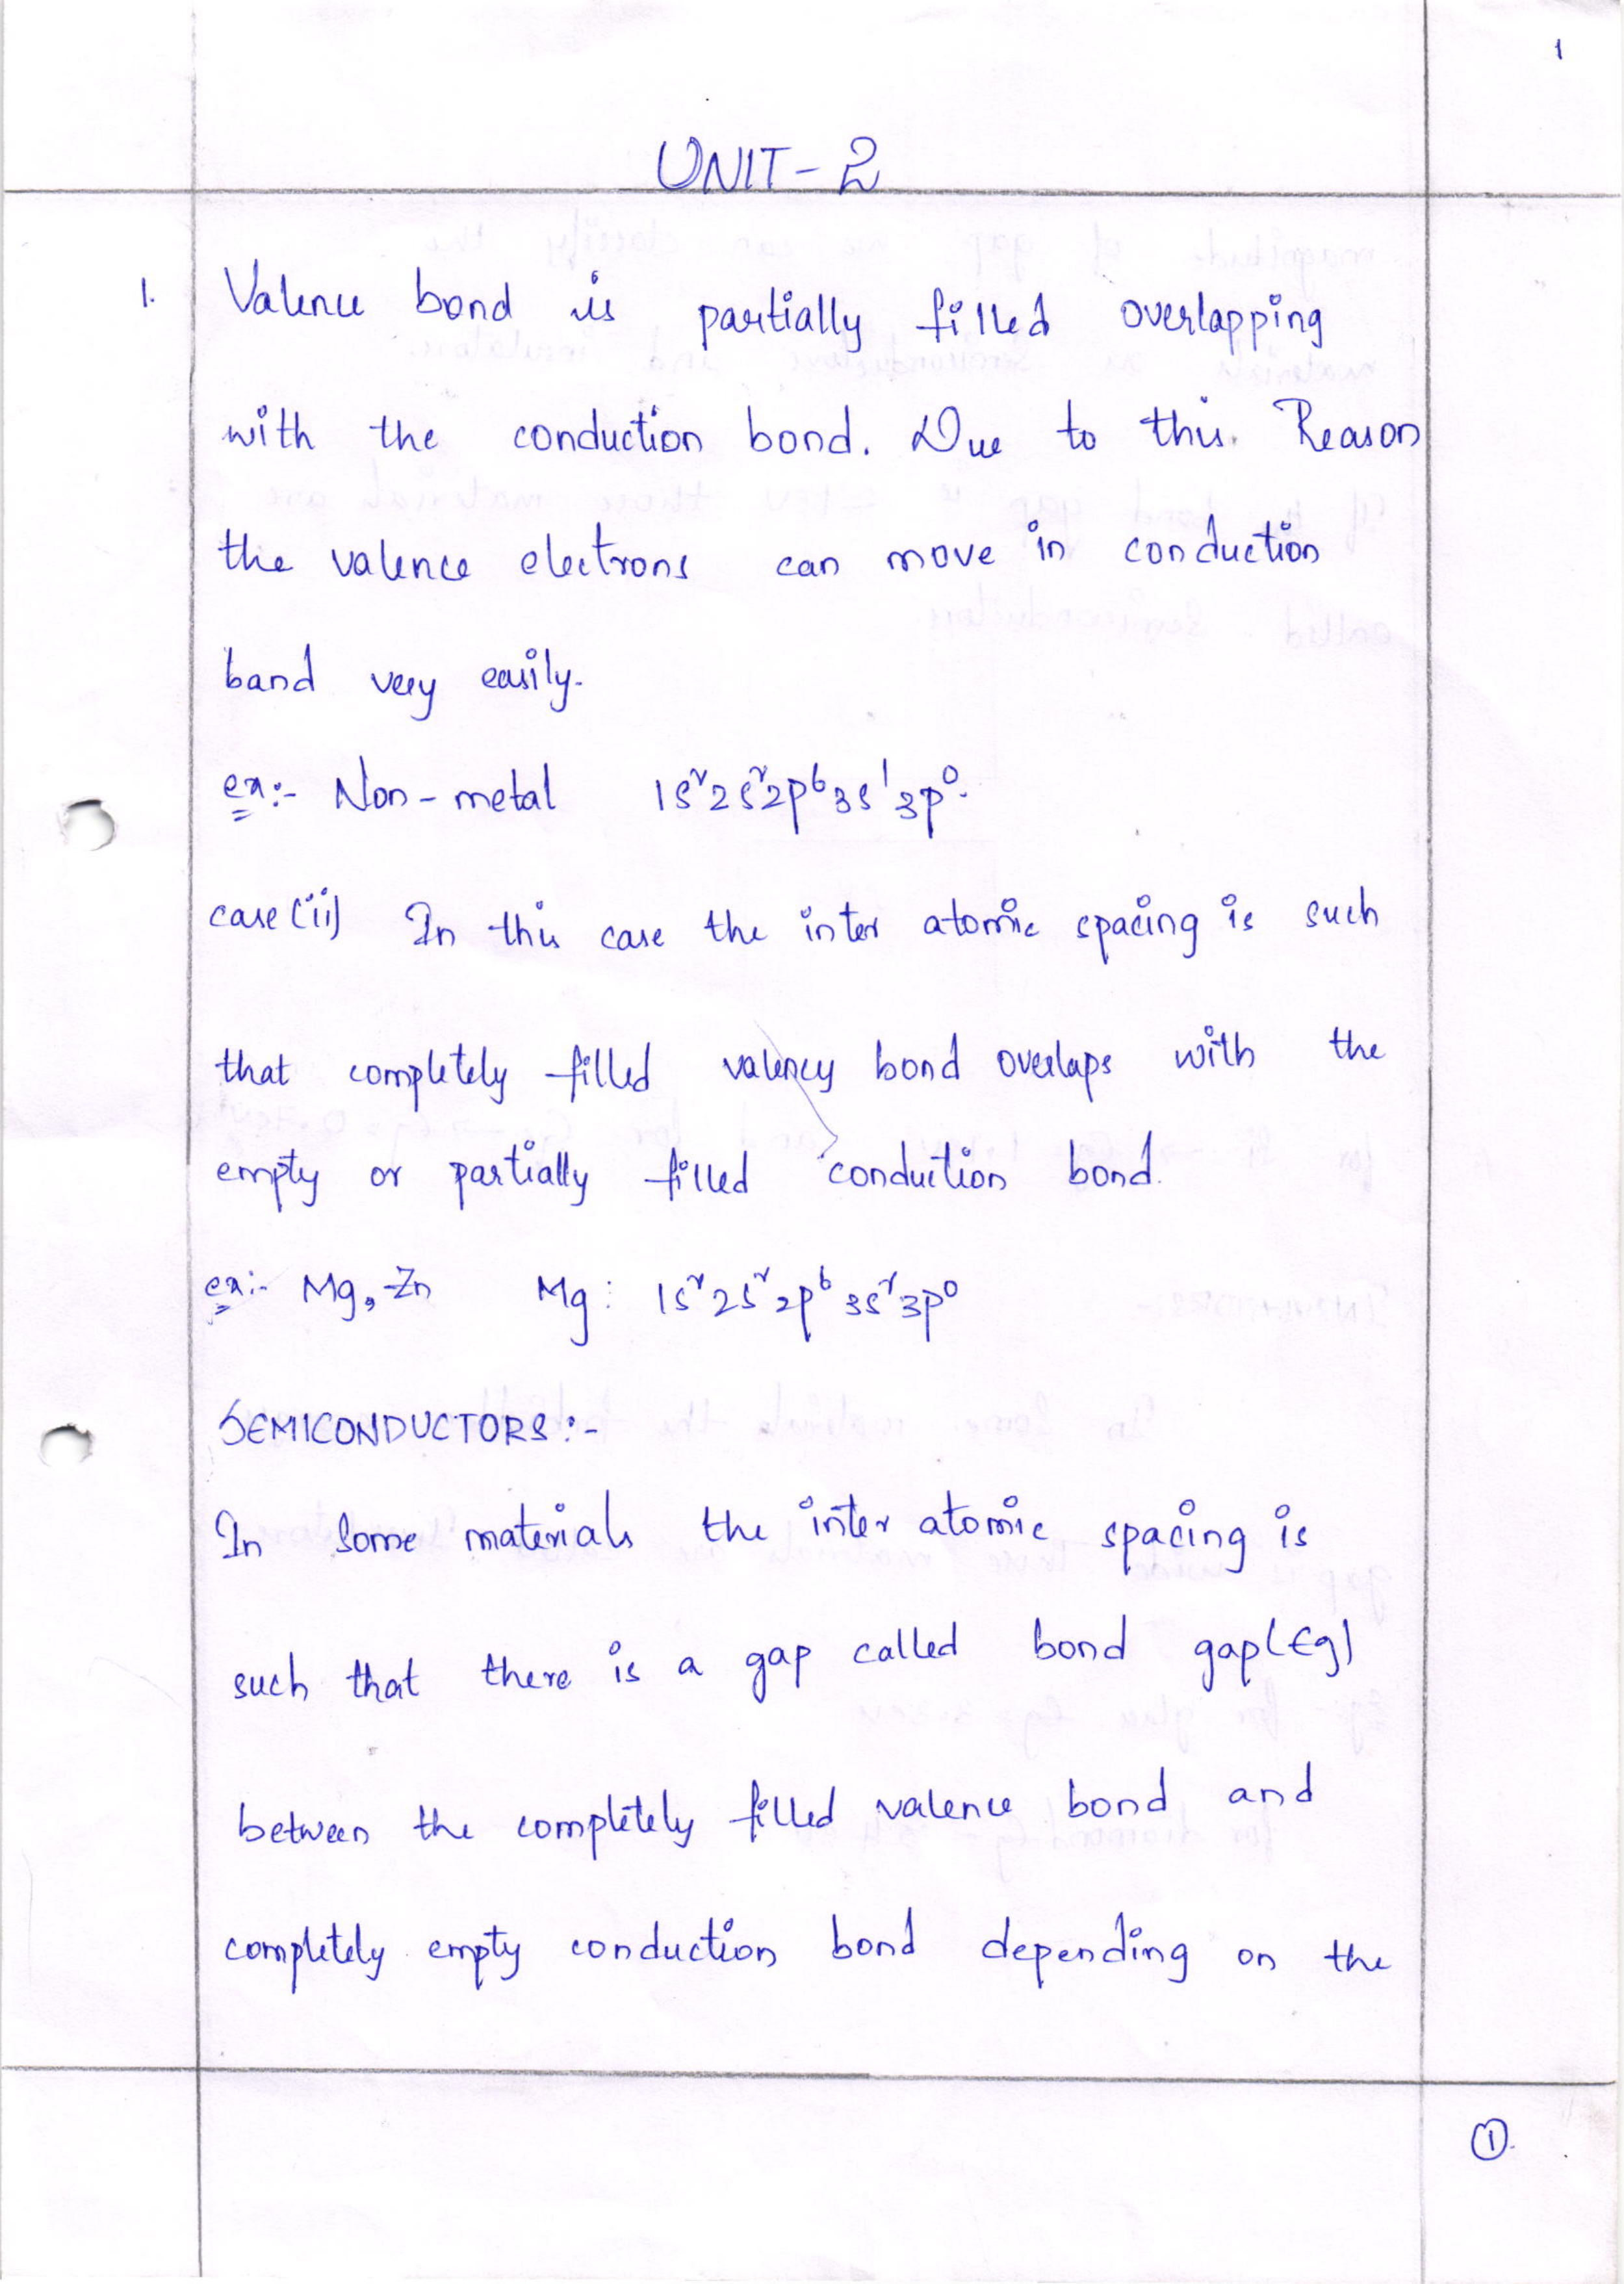 1
UNIT - 2
1. Valence bond is partially filled overlapping
with the conduction bond. Due to this Reason
the valence electrons can move in conduction
band very easily.
ex:- Non-metal 1s²2s²2p⁶3s¹3p⁰.
case (ii) In this case the inter atomic spacing is such
that completely filled valency bond overlaps with the
empty or partially filled conduction bond.
ex:- Mg, Zn Mg: 1s²2s²2p⁶3s²3p⁰
SEMICONDUCTORS:-
In some materials the inter atomic spacing is
such that there is a gap called bond gap(Eg)
between the completely filled valence bond and
completely empty conduction bond depending on the
①